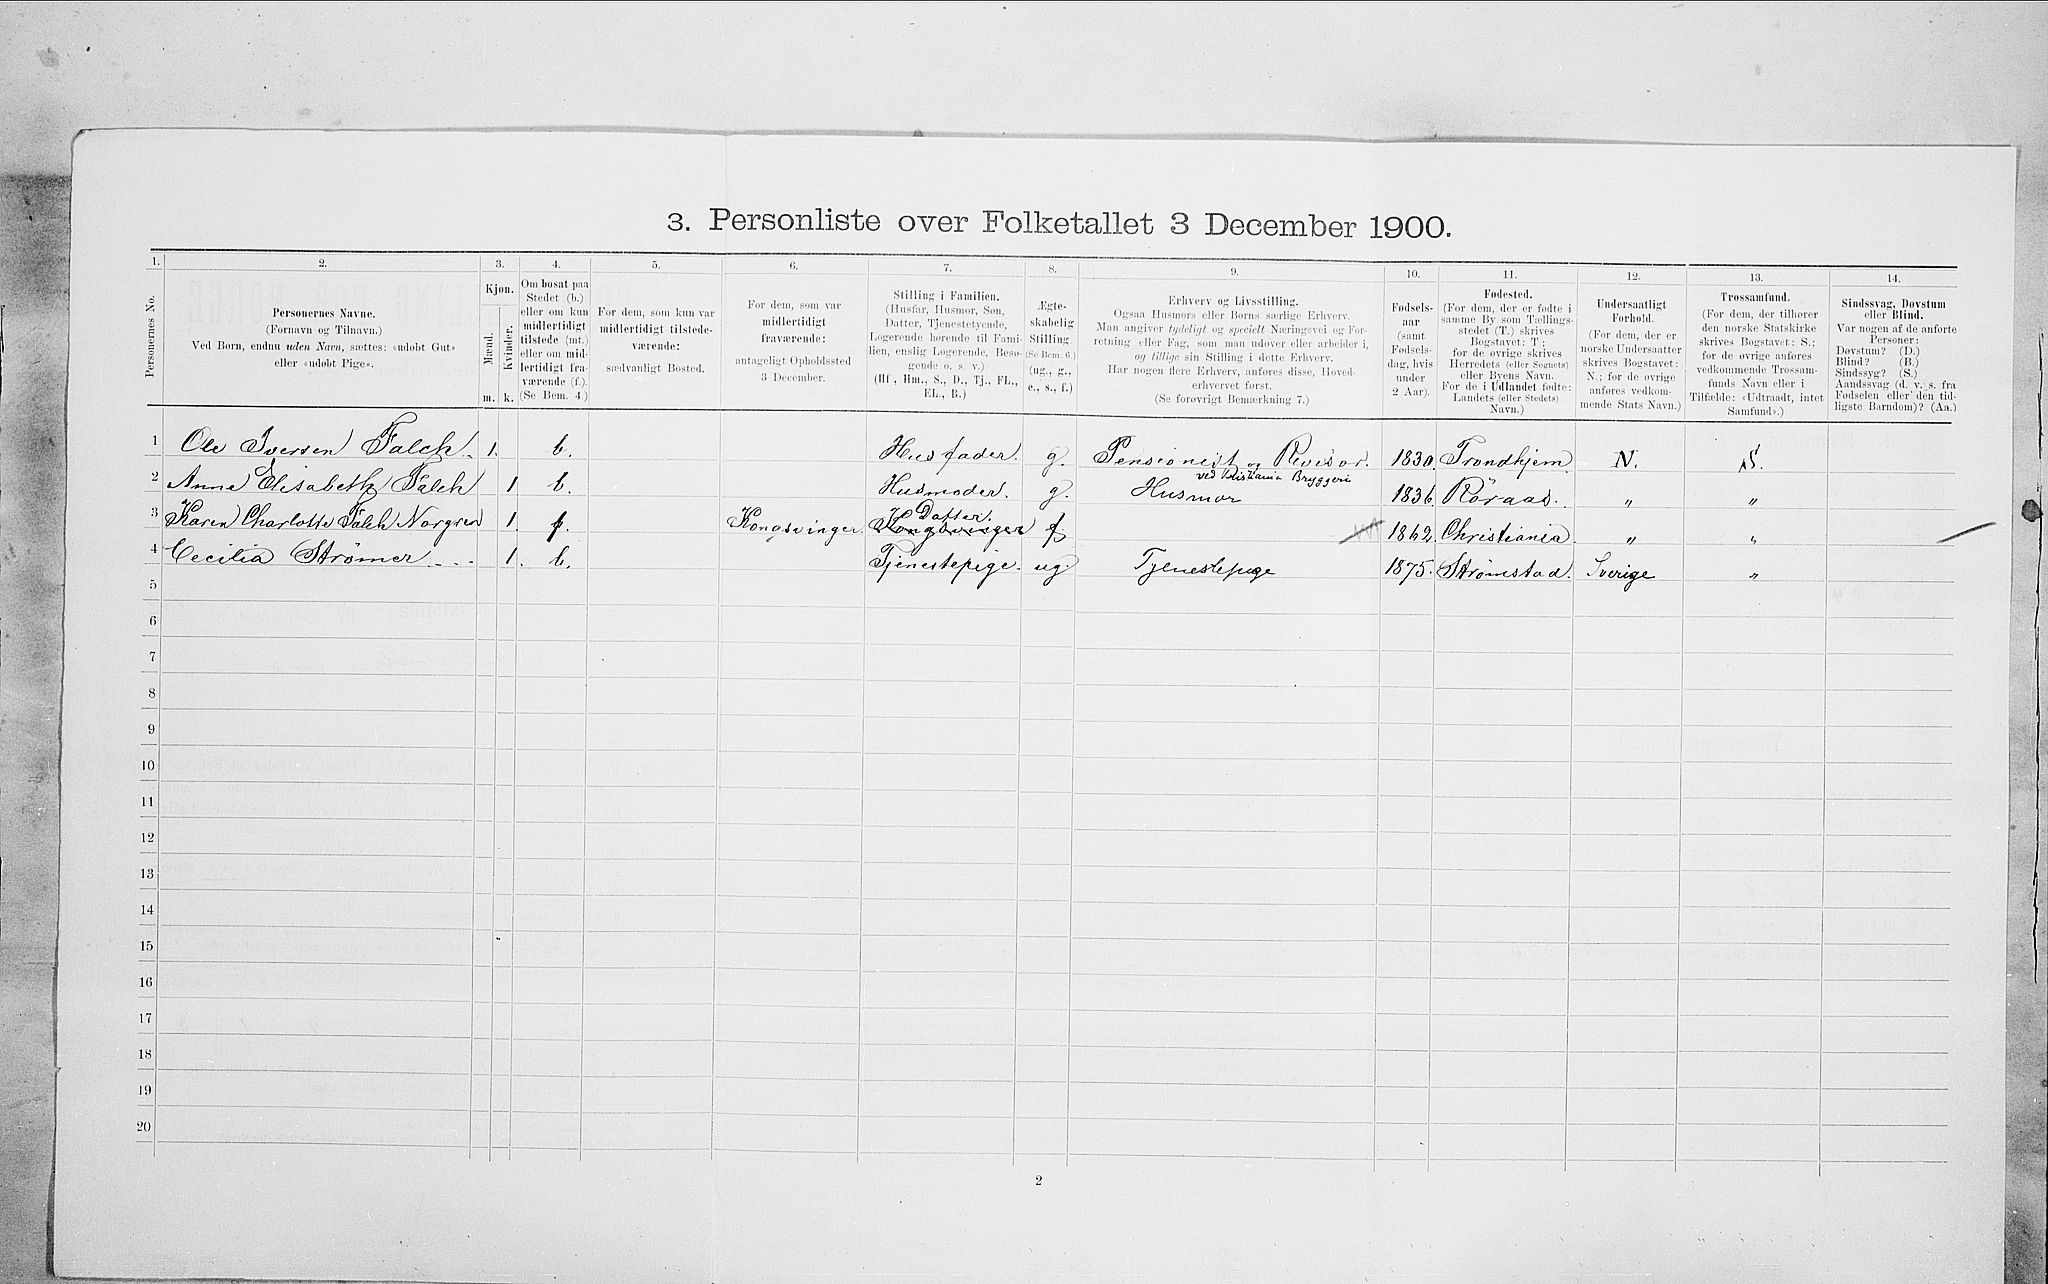 3. Personliste over Folketallet 3 December 1900.
1. 2. 3. 4. 5. 6. 7. 8. 9. 10. 11. 12. 13. 14.
Personernes No.
Personernes Navne.
(Fornavn og Tilnavn.)
Ved Børn, endnu uden Navn, sættes: «udøbt Gut»
eller «udøbt Pige».
Kjøn.
Mænd.
Kvinder.
m. k.
Om bosat paa
Stedet (b.)
eller om kun
midlertidigt
tilstede (mt.)
eller om mid-
lertidigt fra-
værende (f.)
(Se Bem. 4.)
For dem, som kun var
midlertidigt tilstede-
værende:
sædvanligt Bosted.
For dem, som var
midlertidigt
fraværende:
antageligt Opholdssted
3 December.
Stilling i Familien.
(Husfar, Husmor, Søn,
Datter, Tjenestetyende,
Logerende hørende til Fami-
lien, enslig Logerende, Besø-
gende o. s. v.)
(Hf., Hm., S., D., Tj., FL.,
EL., B.)
Ægte-
skabelig
Stilling.
(Se Bem. 6.)
(ug., g.,
e., s., f.)
Erhverv og Livsstilling.
Ogsaa Husmors eller Børns særlige Erhverv.
Man angiver tydeligt og specielt Næringsvei og For-
retning eller Fag, som man udøver eller arbeider i,
og tillige sin Stilling i dette Erhverv.
Har nogen flere Erhverv, anføres disse, Hoved-
erhvervet først.
(Se forøvrigt Bemærkning 7.)
Fødsels-
aar
(samt
Fødsels-
dag, hvis
under
2 Aar).
Fødested.
(For dem, der er fødte i
samme By som Tællings-
stedet (T.) skrives
Bogstavet: T.;
for de øvrige skrives
Herredets (eller Sognets)
eller Byens Navn.
For de i Udlandet fødte:
Landets (eller Stedets)
Navn.)
Undersaatligt
Forhold.
(For dem, der er
norske Undersaatter
skrives Bogstavet:
N.; for de øvrige
anføres vedkom-
mende Stats Navn.)
Trossamfund.
(For dem, der tilhører
den norske Statskirke
skrives Bogstavet: S.;
for de øvrige anføres
vedkommende Trossam-
funds Navn eller i
Tilfælde: «Udtraadt, intet
Samfund».)
Sindssvag, Døvstum
eller Blind.
Var nogen af de anførte
Personer:
Døvstum? (D.)
Blind? (B.)
Sindssyg? (S.)
Aandssvag (d. v. s. fra
Fødselen eller den tid-
ligste Barndom)? (Aa.)
1 Ole Iversen Falch. 1. b. Husfader. g. Pensionist og Revisor. 1830. Trondhjem. N. S.
ved Kristiania Bryggeri
2 Anne Elisabeth Falch 1 b. Husmoder. g. Husmor 1836. Röraas. „ „
Datter.
3 Karen Charlotte Falch Norgren 1. f. Kongsvinger. Kongsvinger f 1862. Christiania. „ „
4 Cecilia Strømer 1. b. Tjenestepige. ug Tjenestepige 1875. Strømstad. Sverige „
5
6
7
8
9
10
11
12
13
14
15
16
17
18
19
20
2